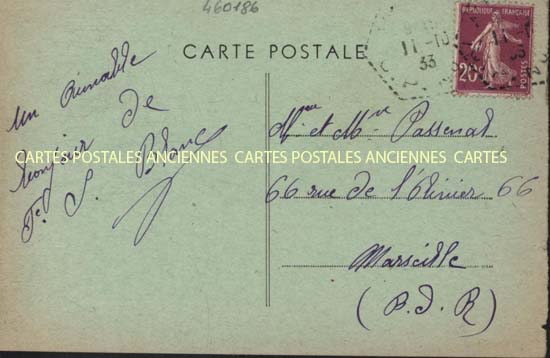 460186
CARTE POSTALE
REPUBLIQUE FRANÇAISE
20c
POSTES
11-10
33
Un aimable
bonjour de
P. Blanc
Mme et Mr Passenat
66 rue de l'Olivier 66
Marseille
(B. d. R)
CARTES POSTALES ANCIENNES CARTES POSTALES ANCIENNES CARTES